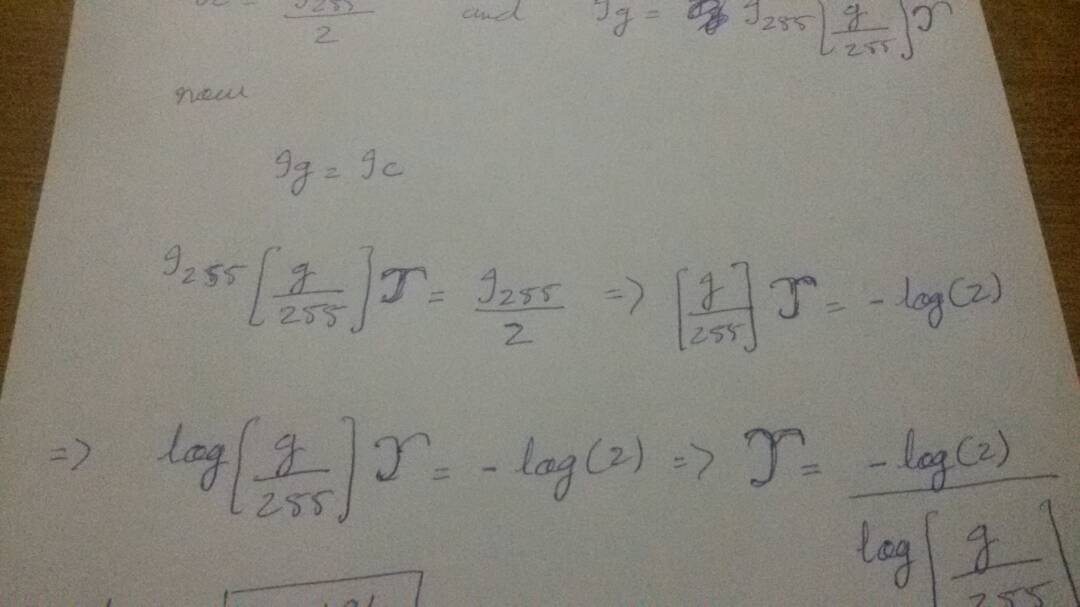 I_255 / 2 and I_g = I_255 [g/255] γ
now
I_g = I_c
I_255 [g/255] γ = I_255 / 2 => [g/255] γ = - log(2)
=> log [g/255] γ = - log(2) => γ = - log(2) / log [g/255]